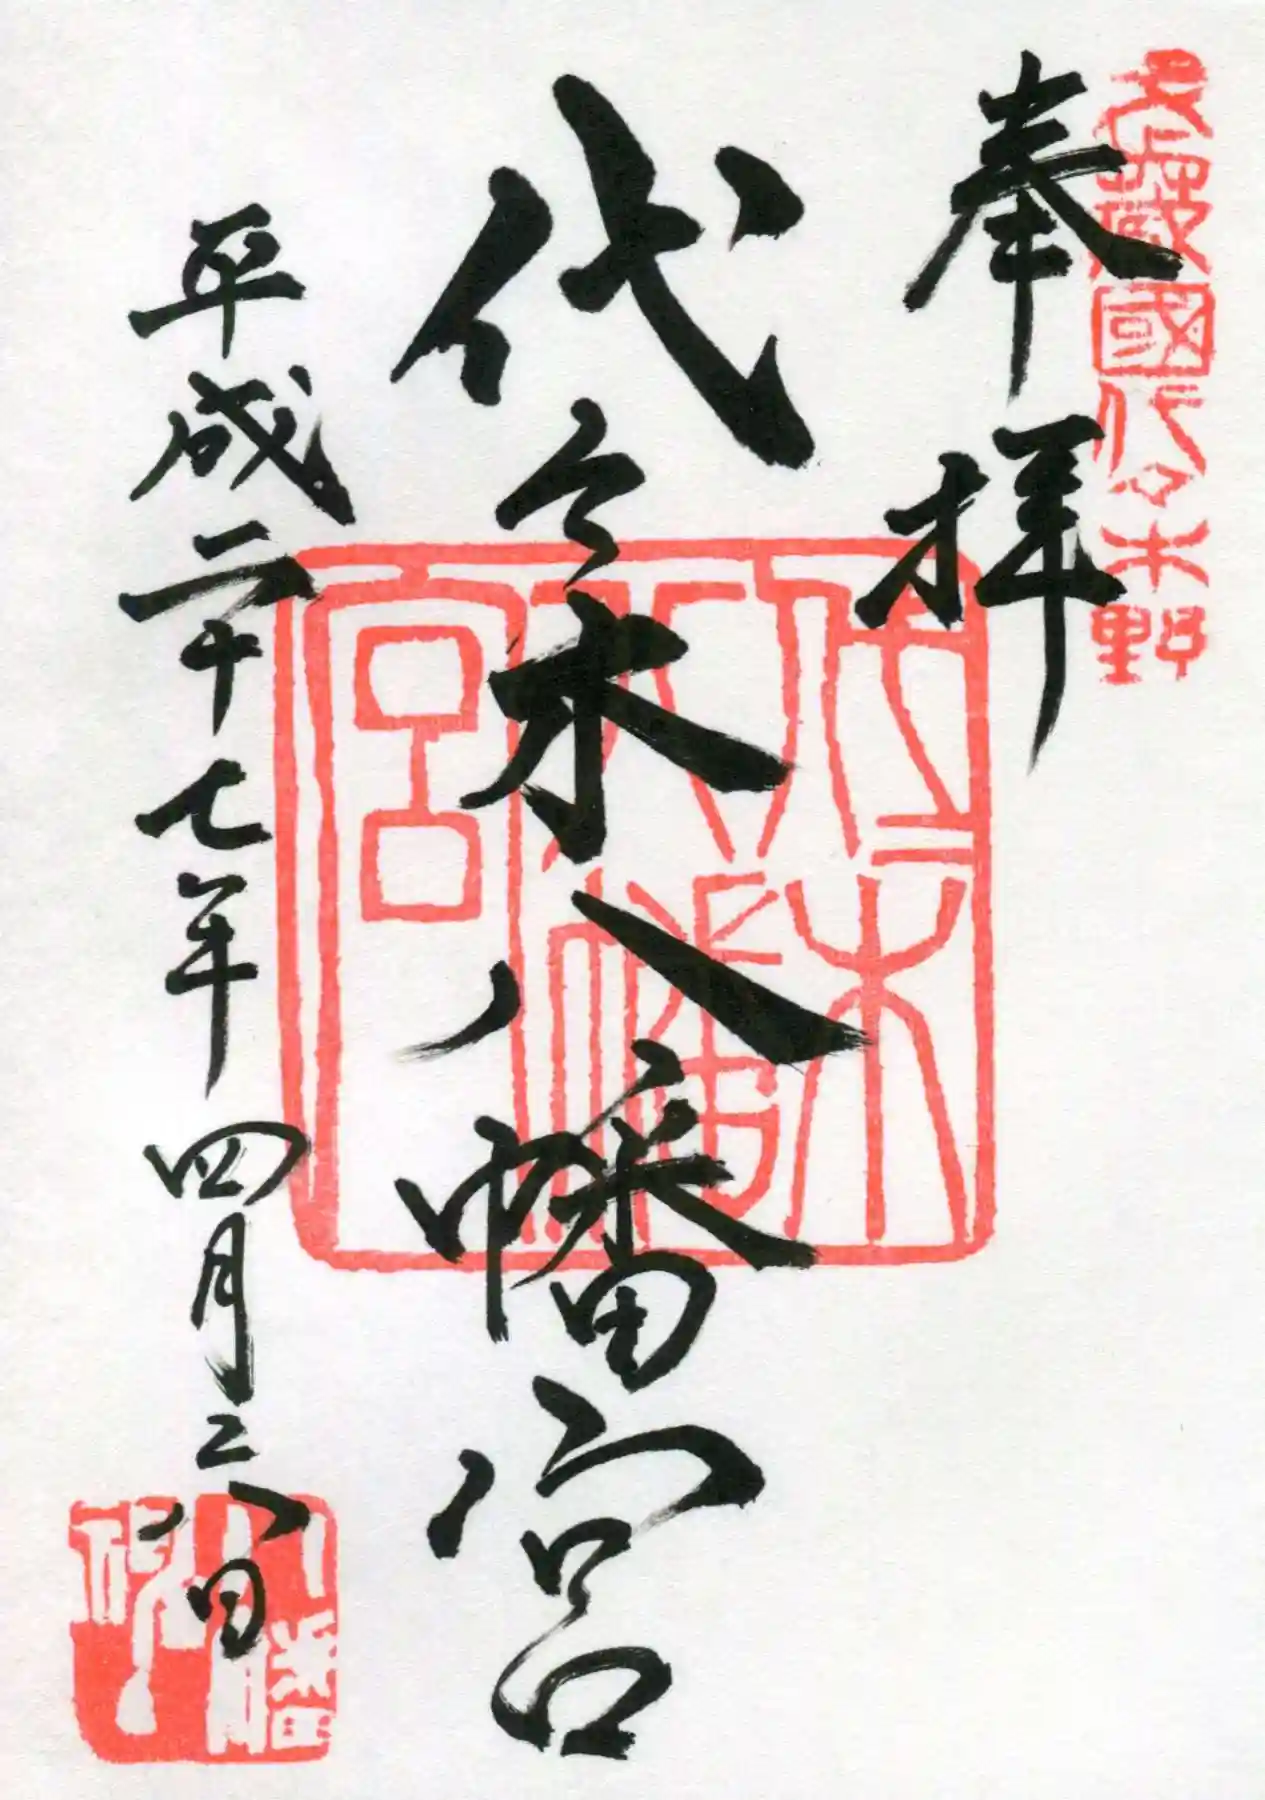 武蔵國代々木野
奉拝
代々木八幡宮
代々木八幡宮
平成二十七年四月二八日
八幡